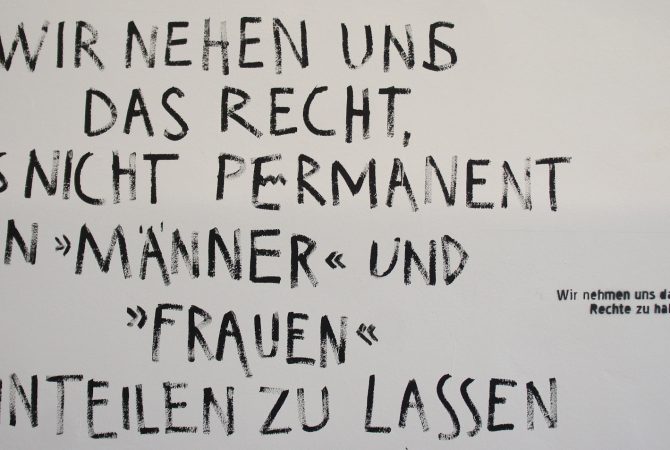 WIR NEHEN UNS
DAS RECHT,
S NICHT PERMANENT
N »MÄNNER« UND
»FRAUEN«
INTEILEN ZU LASSEN
Wir nehmen uns da
Rechte zu hab